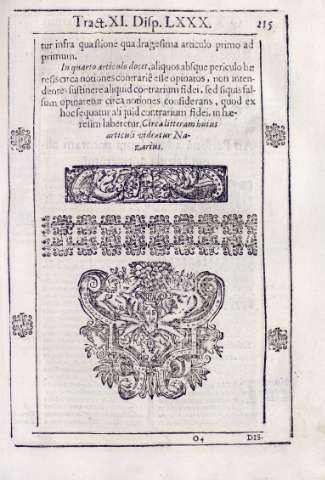 Tract. XI. Disp. LXXX. 215
tur infra quæstione quadragesima articulo primo ad
primum.
In quarto articulo docet, aliquos absque periculo hæ
resis circa notiones contrariè esse opinatos, non inten-
dentes sustinere aliquid contrarium fidei, sed siquis fal-
sum opinaretur circa notiones considerans, quod ex
hoc sequatur aliquid contrarium fidei, in hæ-
resim laberetur. Circa litteram huius
articuli videatur Na-
zarius.
O4 DIS-